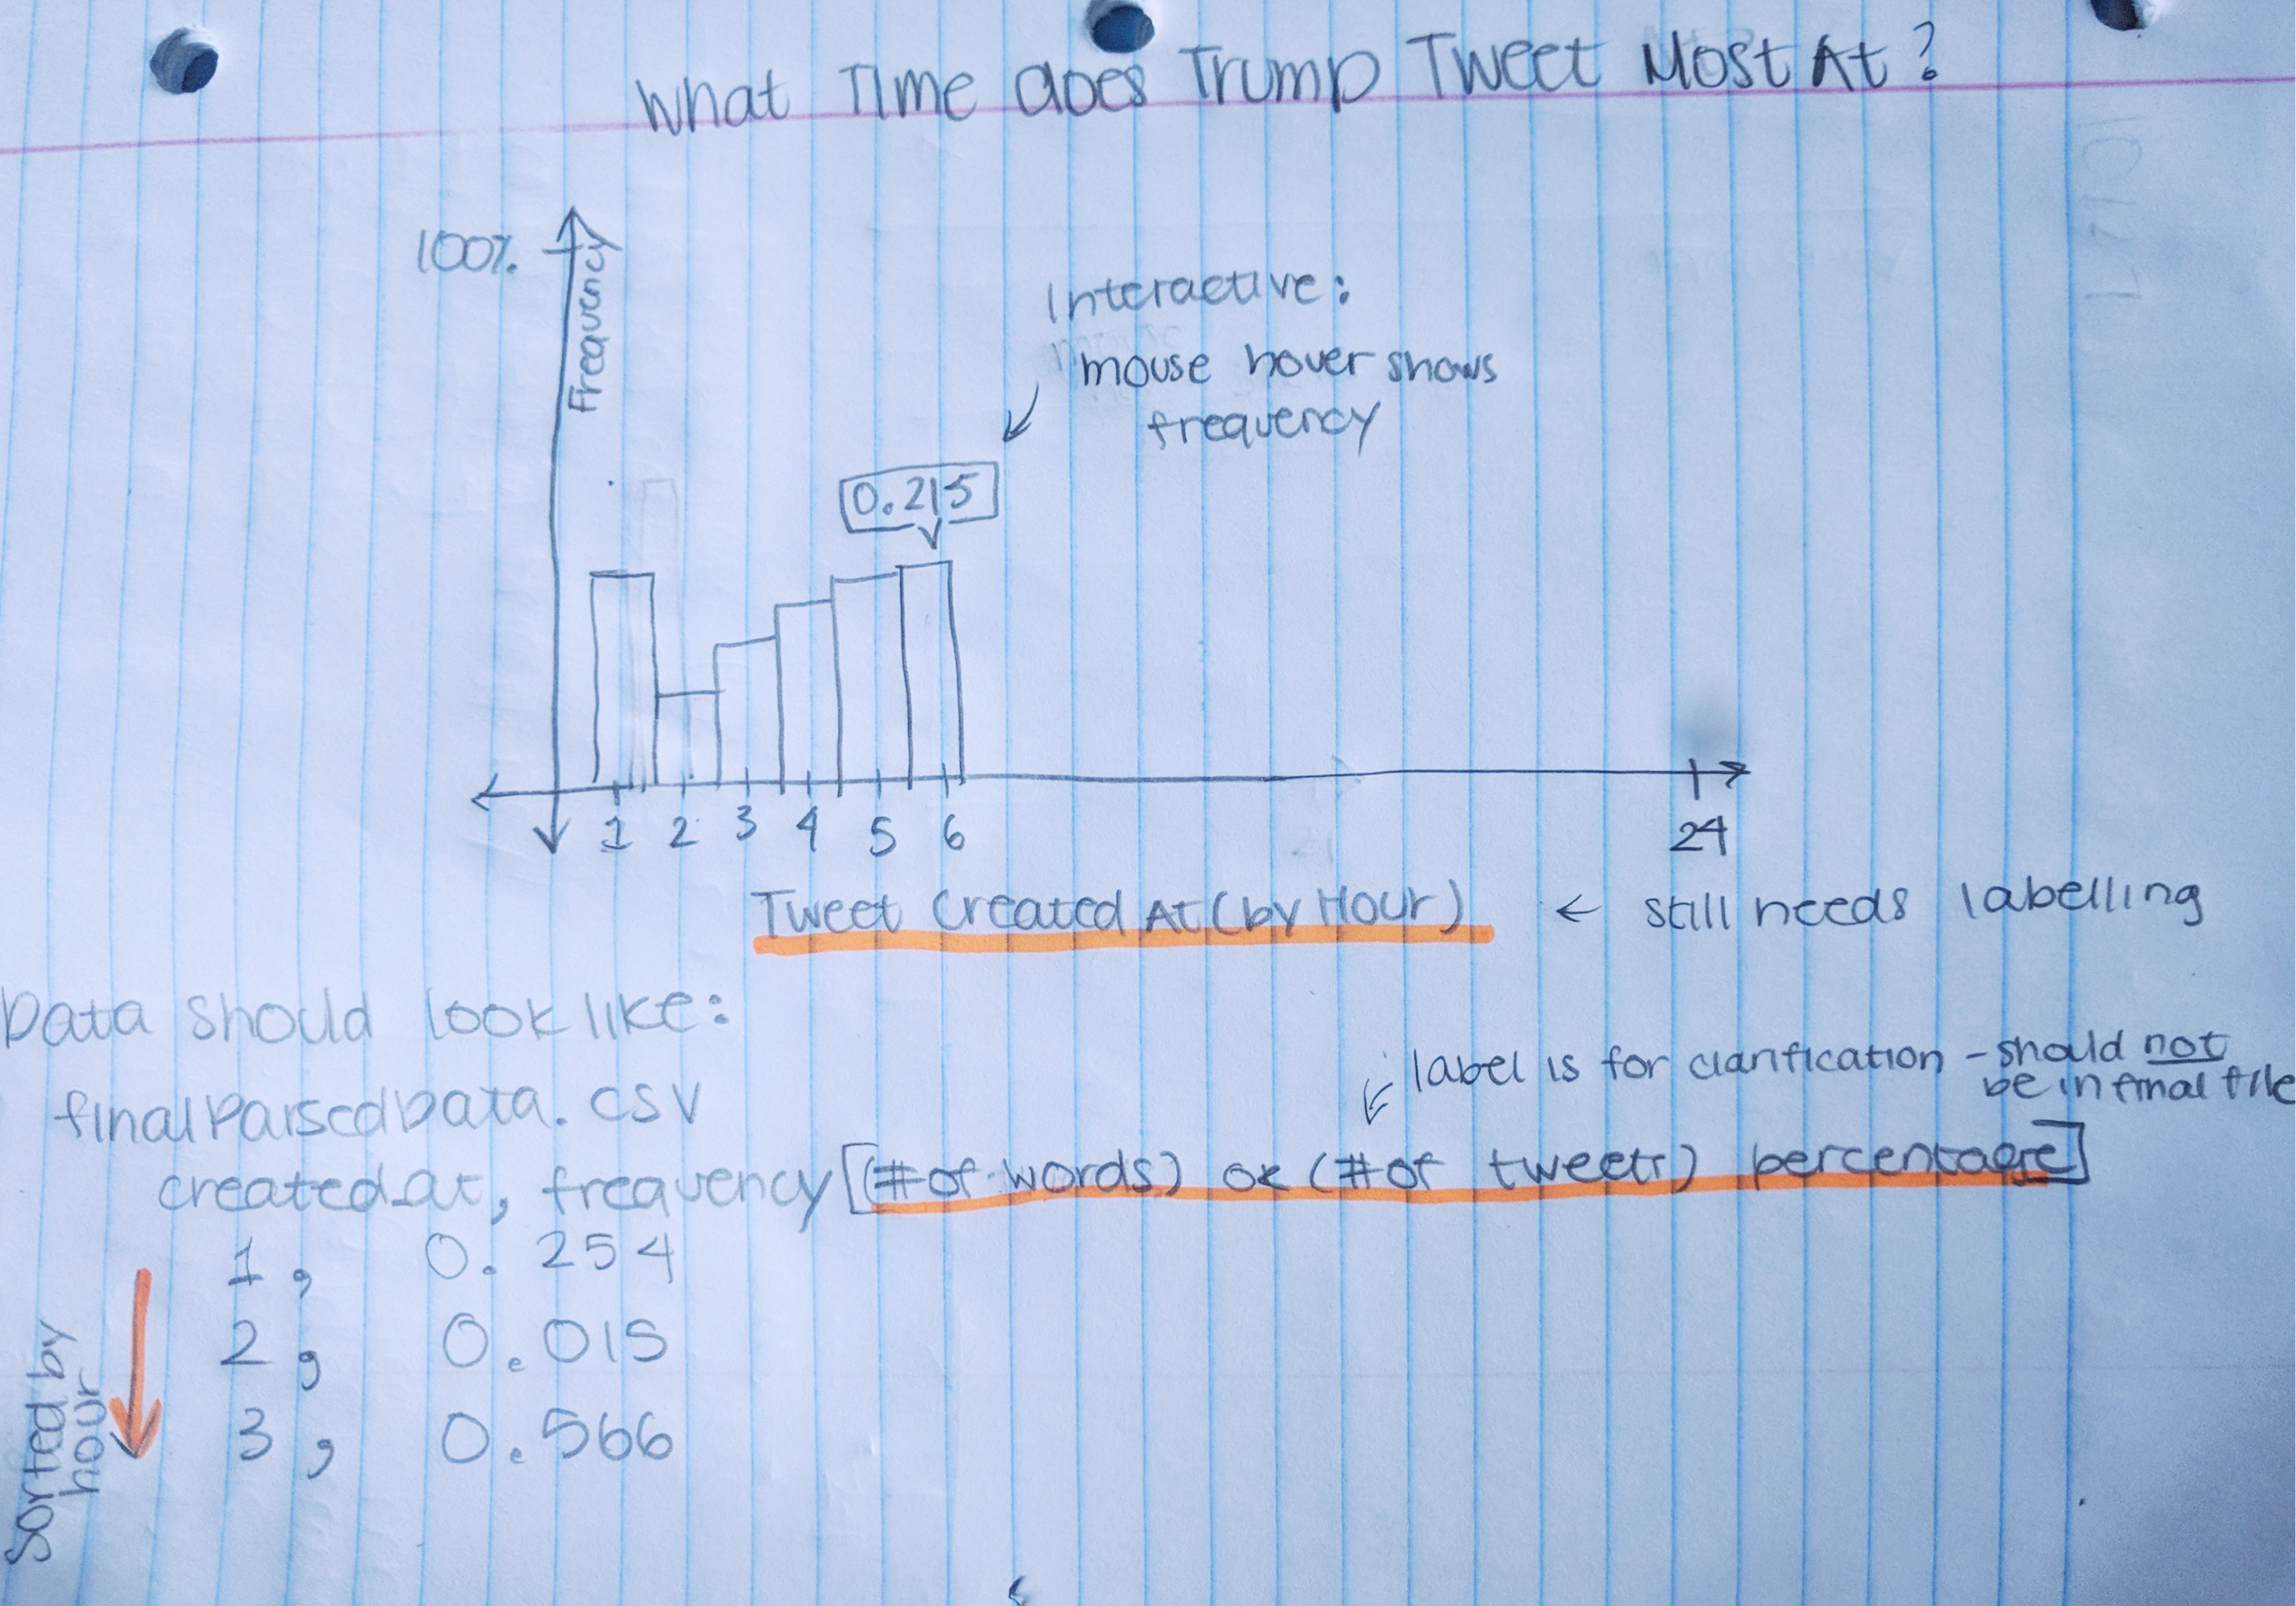 What Time does Trump Tweet Most At?
100%
Frequency
Interactive:
mouse hover shows
frequency
0.215
1 2 3 4 5 6 24
Tweet Created At (by Hour) ← still needs labelling
Data should look like:
label is for clarification - should not
be in final file
finalParsedData.csv
created_at, frequency [(# of words) or (# of tweets) percentage]
1, 0.254
2, 0.015
3, 0.566
Sorted by
hour